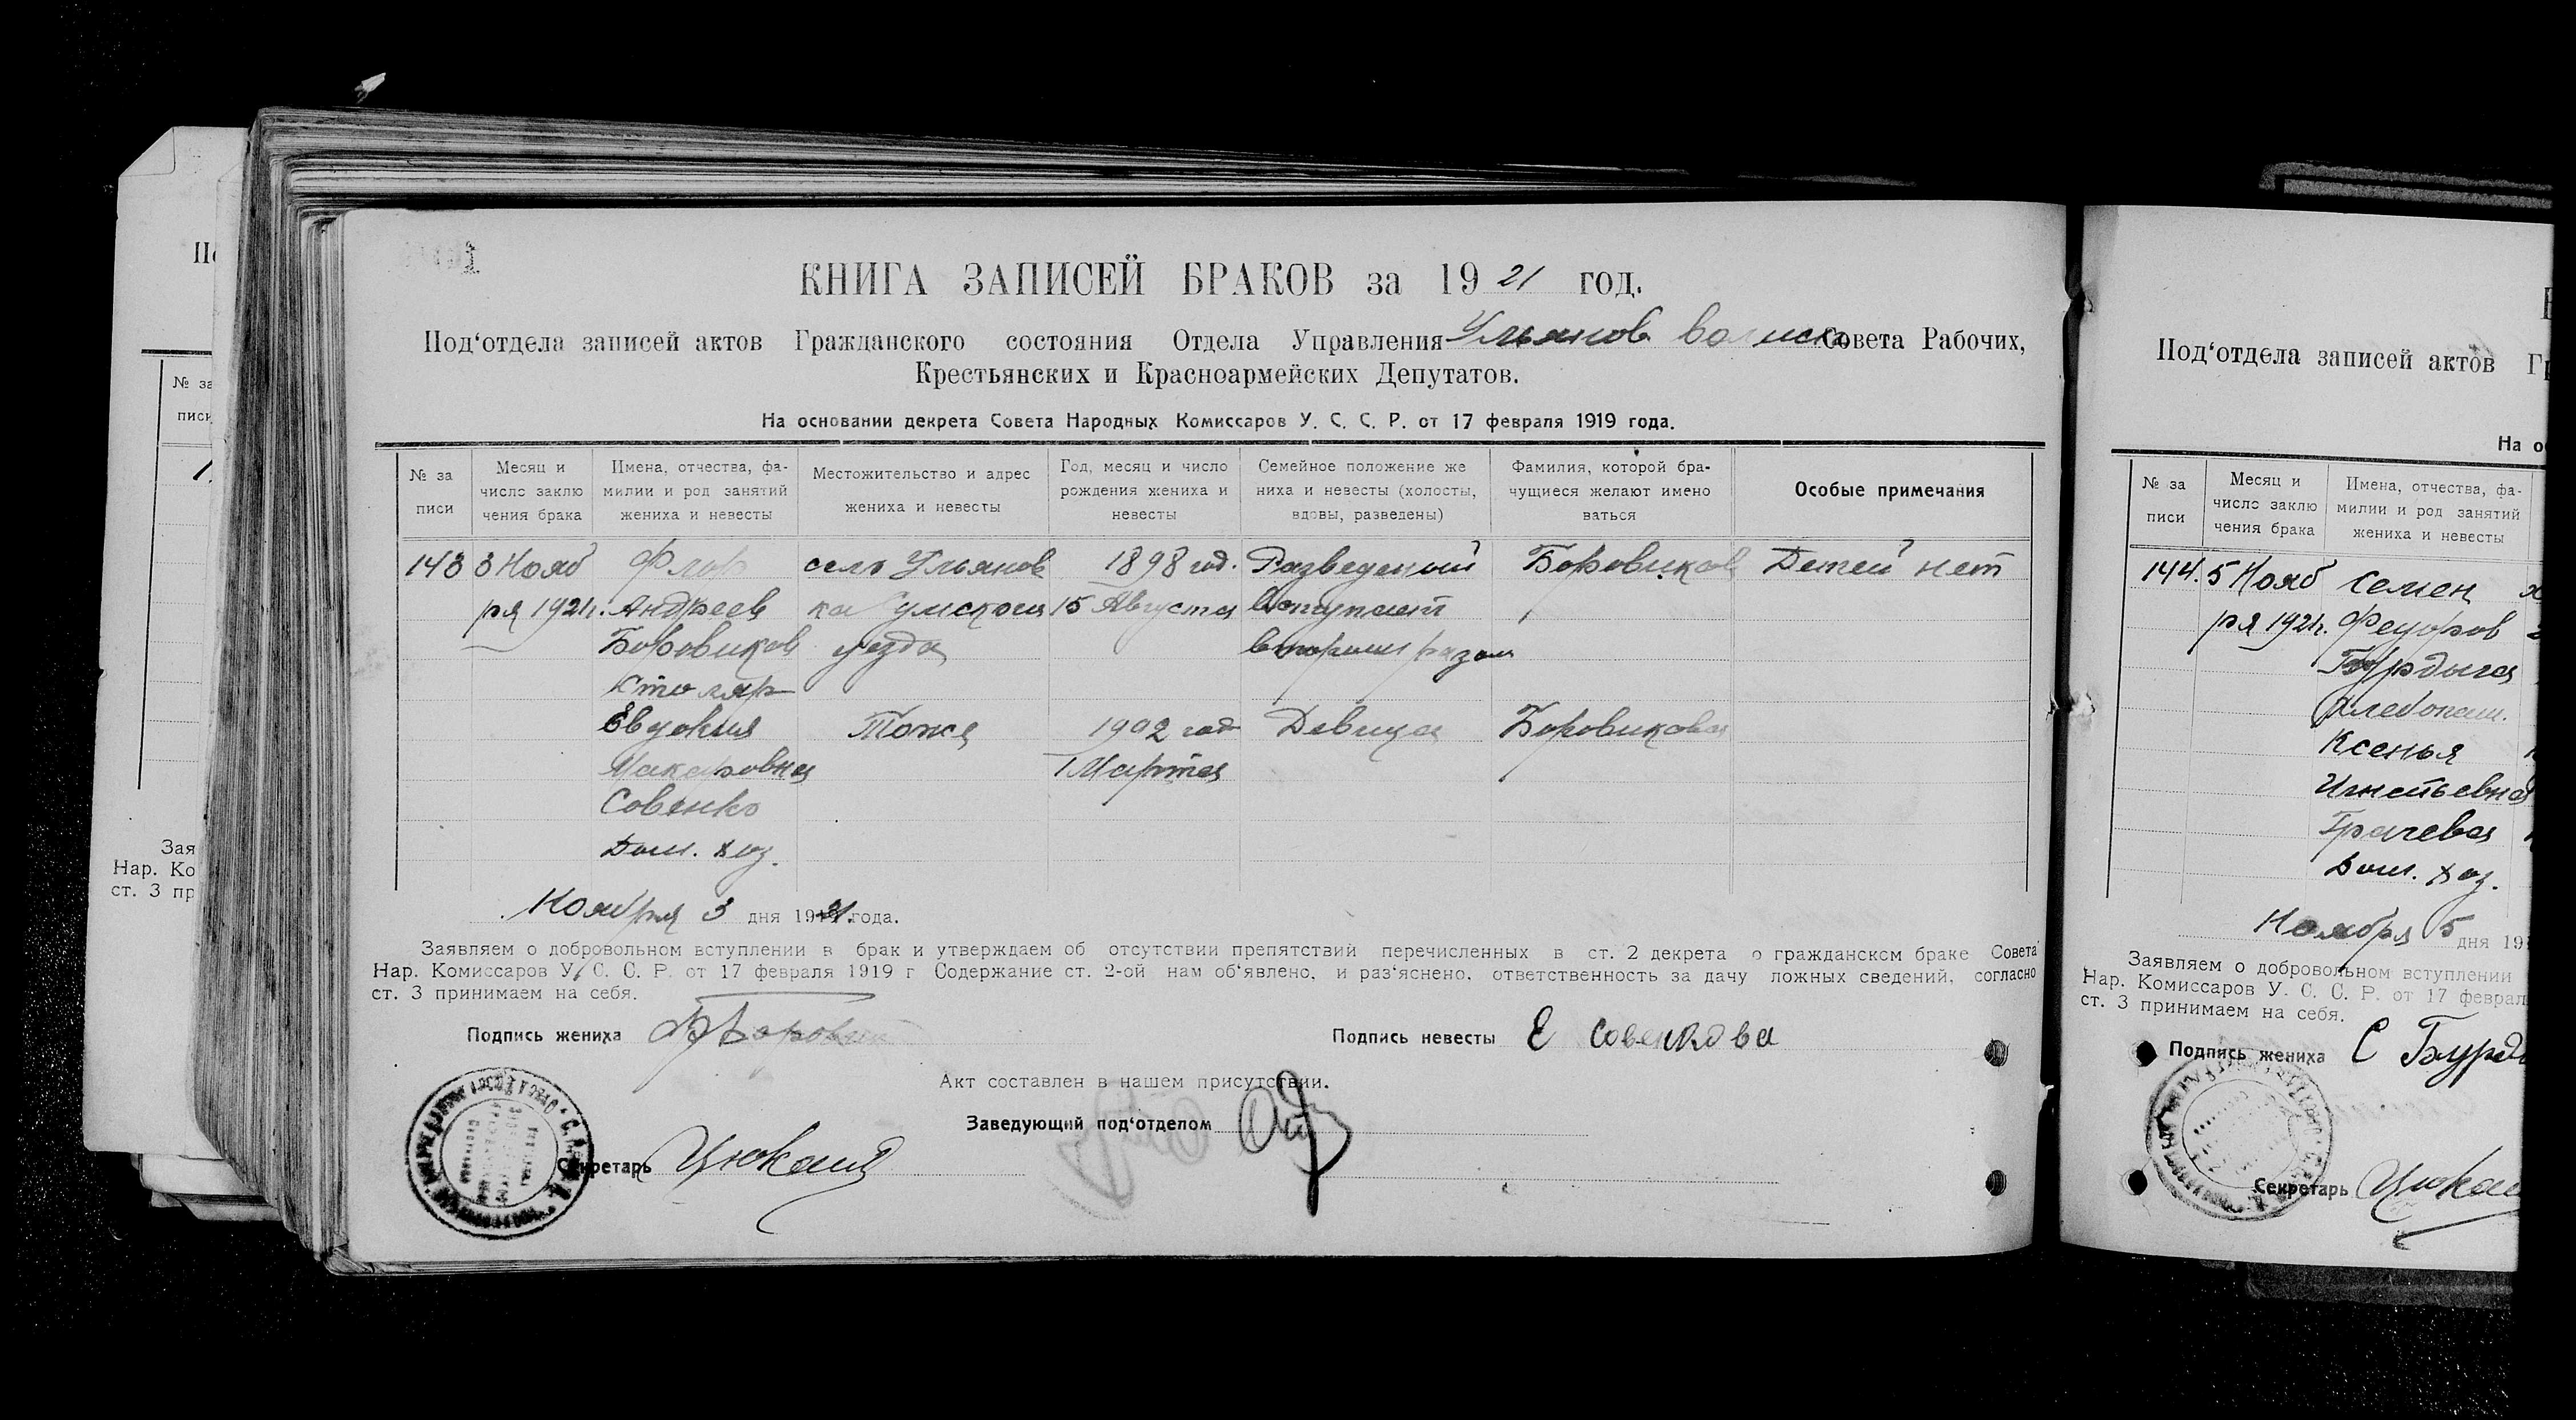 КНИГА ЗАПИСЕЙ БРАКОВ за 1921 год.
Под‘отдела записей актов Гражданского состояния Отдела Управления Ульянов. Совета Рабочих,
Крестьянских и Красноармейских Депутатов.
На основании декрета Совета Народных Комиссаров У. С. С. Р. от 17 февраля 1919 года.
№ за
писи
Месяц и
число заклю
чения брака
Имена, отчества, фа-
милии и род занятий
жениха и невесты
Местожительство и адрес
жениха и невесты
Год, месяц и число
рождения жениха и
невесты
Семейное положение же
ниха и невесты (холосты,
вдовы, разведены)
Фамилия, которой бра-
чущиеся желают имено
ваться
Особые примечания
143
3 Нояб
ря 1921г.
Флор
Андреев
Боровиков
Столяр
село Ульянов
ка Сумского
уезда
1898 год.
15 Августа
Разведеный
вступает
вторым разом
Боровиков
Детей нет
Евдокия
Макаровна
Совенко
Дом. хоз.
Тоже
1902 год
1 Марта
Девица
Боровикова
Ноября 3 дня 1921 года.
Заявляем о добровольном вступлении в брак и утверждаем об отсутствии препятствий перечисленных в ст. 2 декрета о гражданском браке Совета
Нар. Комиссаров У. С. С. Р. от 17 февраля 1919 г Содержание ст. 2-ой нам об‘явлено, и раз‘яснено, ответственность за дачу ложных сведений, согласно
ст. 3 принимаем на себя.
Подпись жениха
Подпись невесты Е Совенкова
Акт составлен в нашем присутствии.
Заведующий под‘отделом
Секретарь
№ за
писи
Зая
Нар. Ко
ст. 3 пр
Под‘отдела записей актов Гр
На о
№ за
писи
Месяц и
число заклю
чения брака
Имена, отчества, фа-
милии и род занятий
жениха и невесты
144.
5 Нояб
ря 1921г.
Семен
Федоров
Бурдыга
Хлебопаш.
Ксенья
Игнатьевна
Грачева
Дом. хоз.
Ноября 5 дня 19
Заявляем о добровольном вступлении
Нар. Комиссаров У. С. С. Р. от 17 феврал
ст. 3 принимаем на себя.
Подпись жениха С Бурды
Секретарь